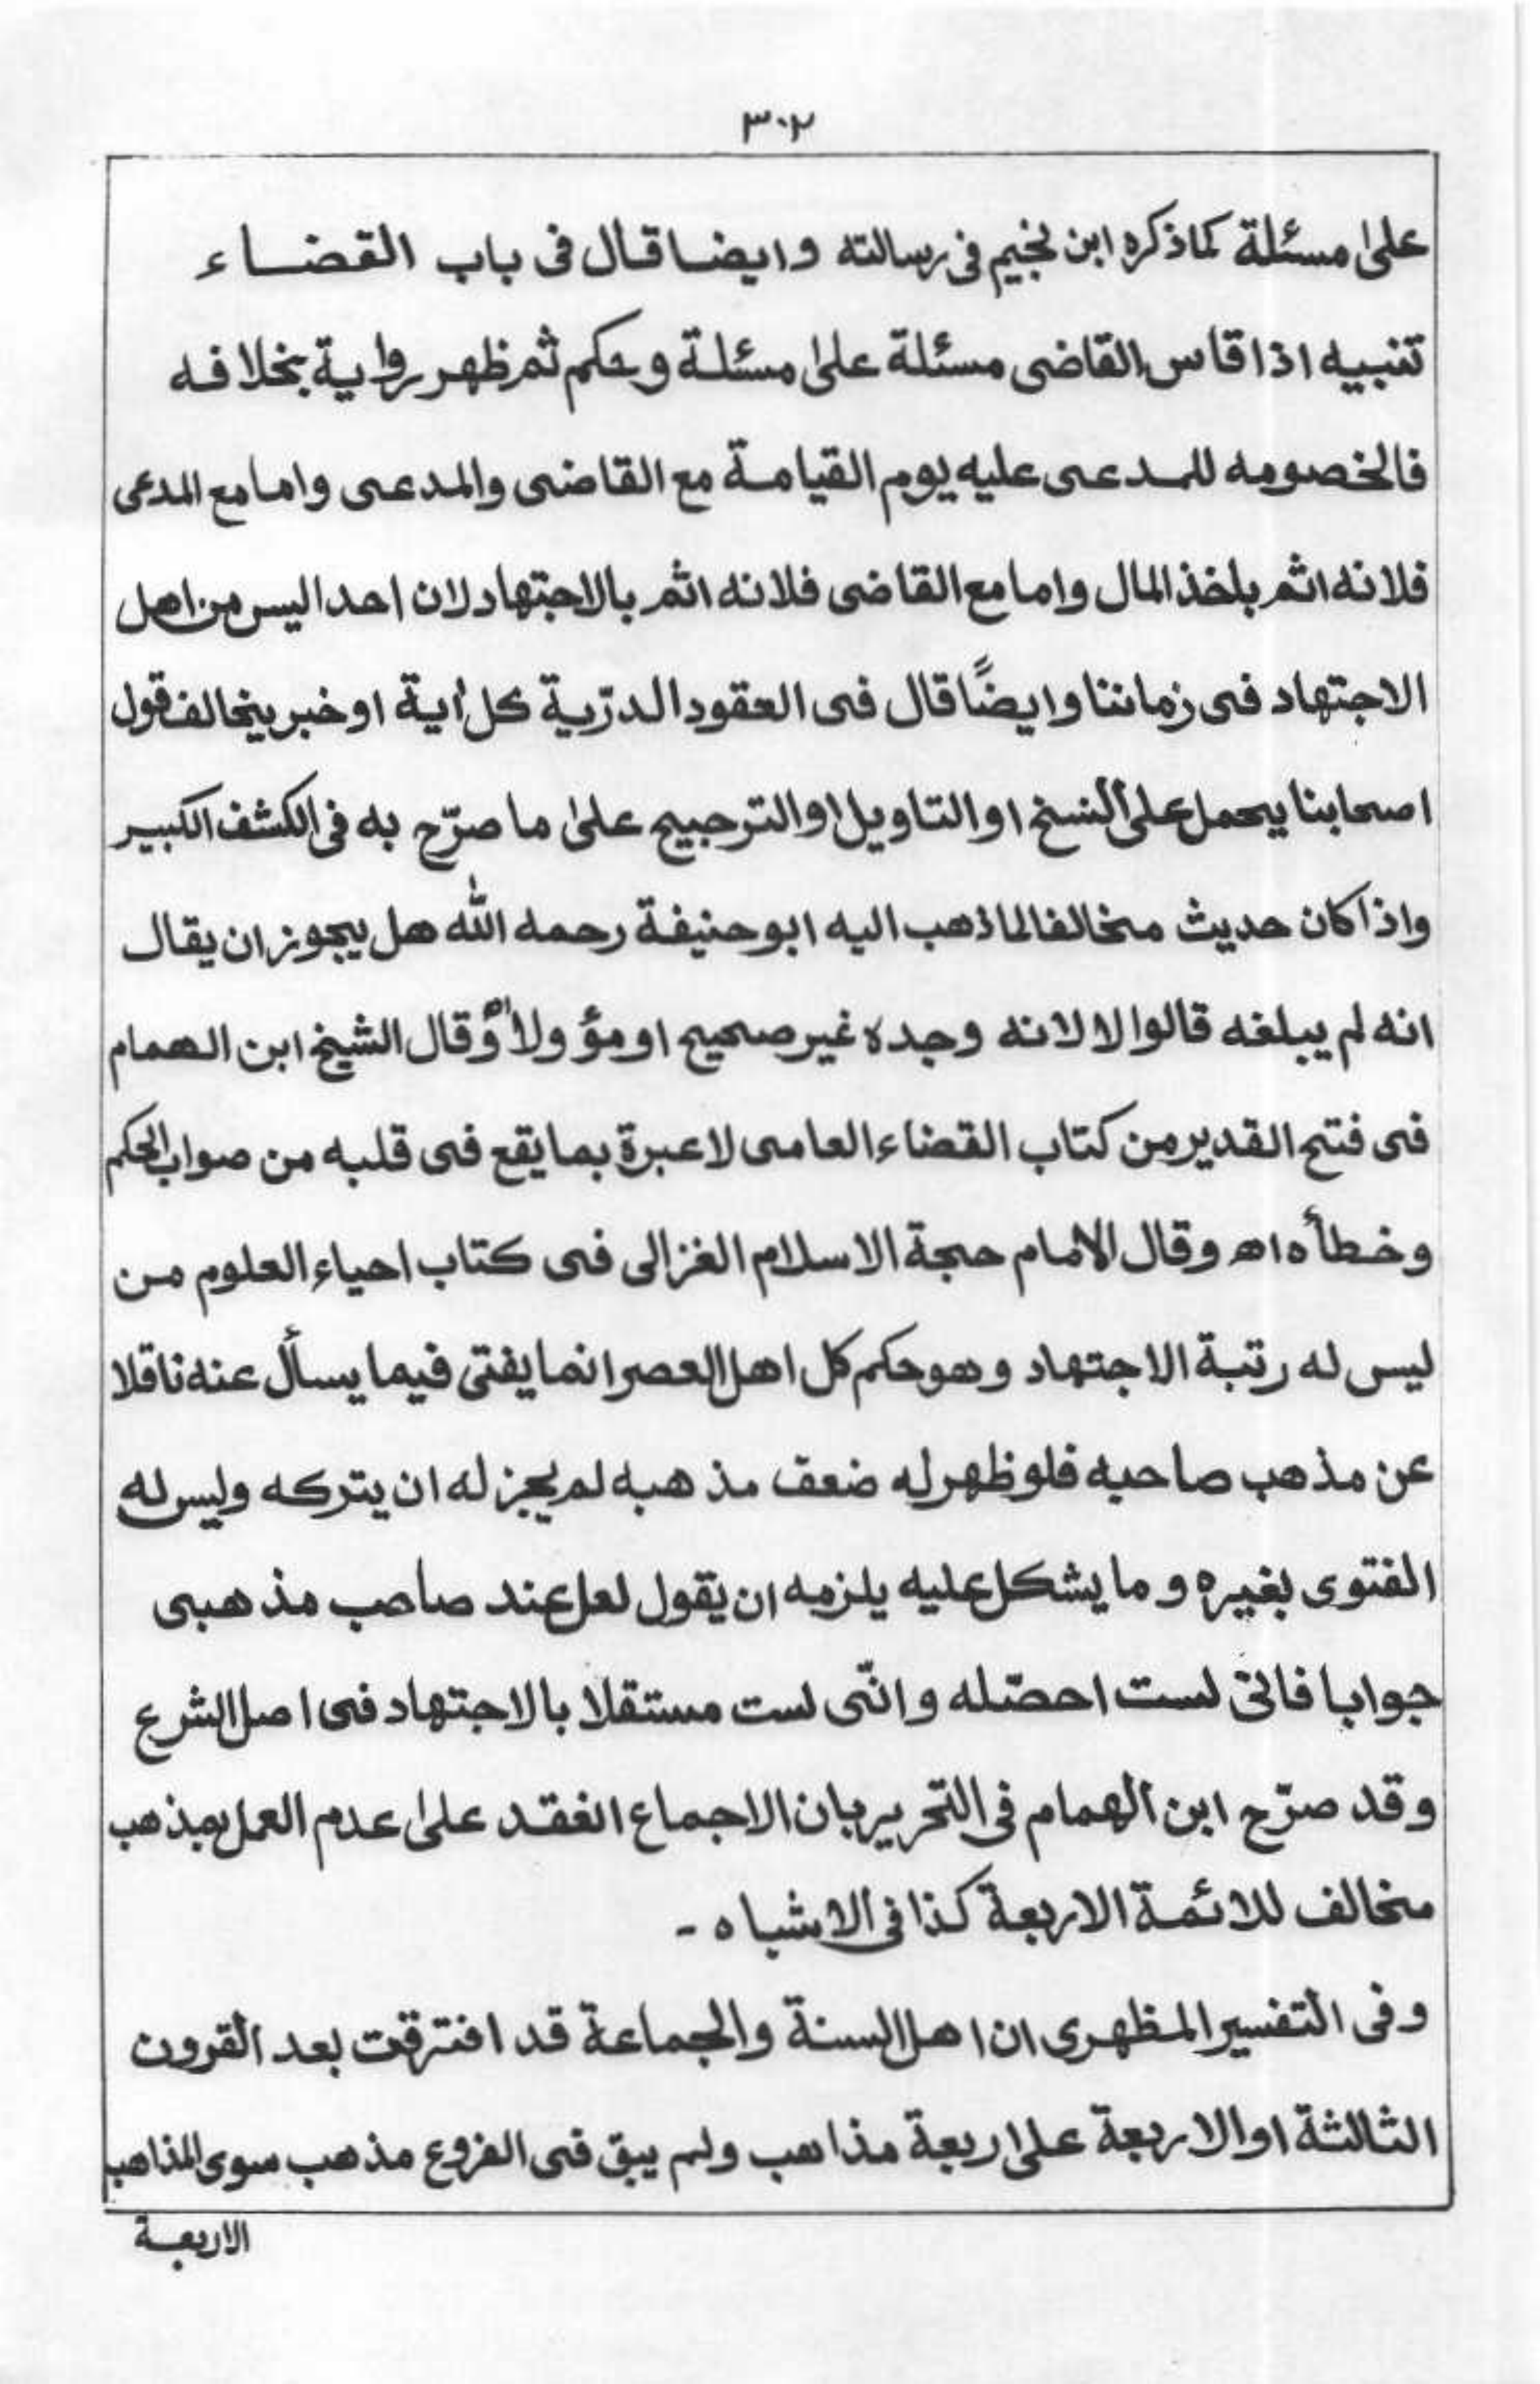 ٣٠٢
على مسئلة كماذكره ابن نجيم فى رسالته وايضا قال فى باب القضاء
تنبيه اذا قاس القاضى مسئلة على مسئلة وحكم ثم ظهر رواية بخلافه
فالخصومه للمدعى عليه يوم القيامة مع القاضى والمدعى واما مع المدعى
فلانه اثم باخذ المال واما مع القاضى فلانه اثم بالاجتهاد لان احدا ليس من اهل
الاجتهاد فى زماننا وايضًا قال فى العقود الدرّية كل اٰية او خبر يخالف قول
اصحابنا يحمل على النسخ او التاويل او الترجيح على ما صرّح به فى الكشف الكبير
واذا كان حديث مخالفا لما ذهب اليه ابو حنيفة رحمه الله هل يجوز ان يقال
انه لم يبلغه قالوا لا لانه وجده غير صحيح او مؤولا ً وقال الشيخ ابن الهمام
فى فتح القدير من كتاب القضاء العامى لا عبرة بما يقع فى قلبه من صواب الحكم
وخطأه اه وقال الامام حجة الاسلام الغزالى فى كتاب احياء العلوم من
ليس له رتبة الاجتهاد وهو حكم كل اهل العصر انما يفتى فيما يسأل عنه ناقلا
عن مذهب صاحبه فلو ظهر له ضعف مذهبه لم يجز له ان يتركه وليس له
الفتوى بغيره وما يشكل عليه يلزمه ان يقول لعل عند صاحب مذهبى
جوابا فانى لست احصّله وانّى لست مستقلا بالاجتهاد فى اصل الشرع
وقد صرّح ابن الهمام فى التحرير بان الاجماع انعقد على عدم العمل بمذهب
مخالف للائمة الاربعة كذا فى الاشباه -
وفى التفسير المظهرى ان اهل السنة والجماعة قد افترقت بعد القرون
الثالثة او الاربعة على اربعة مذاهب ولم يبق فى الفروع مذهب سوى المذاهب
الاربعة